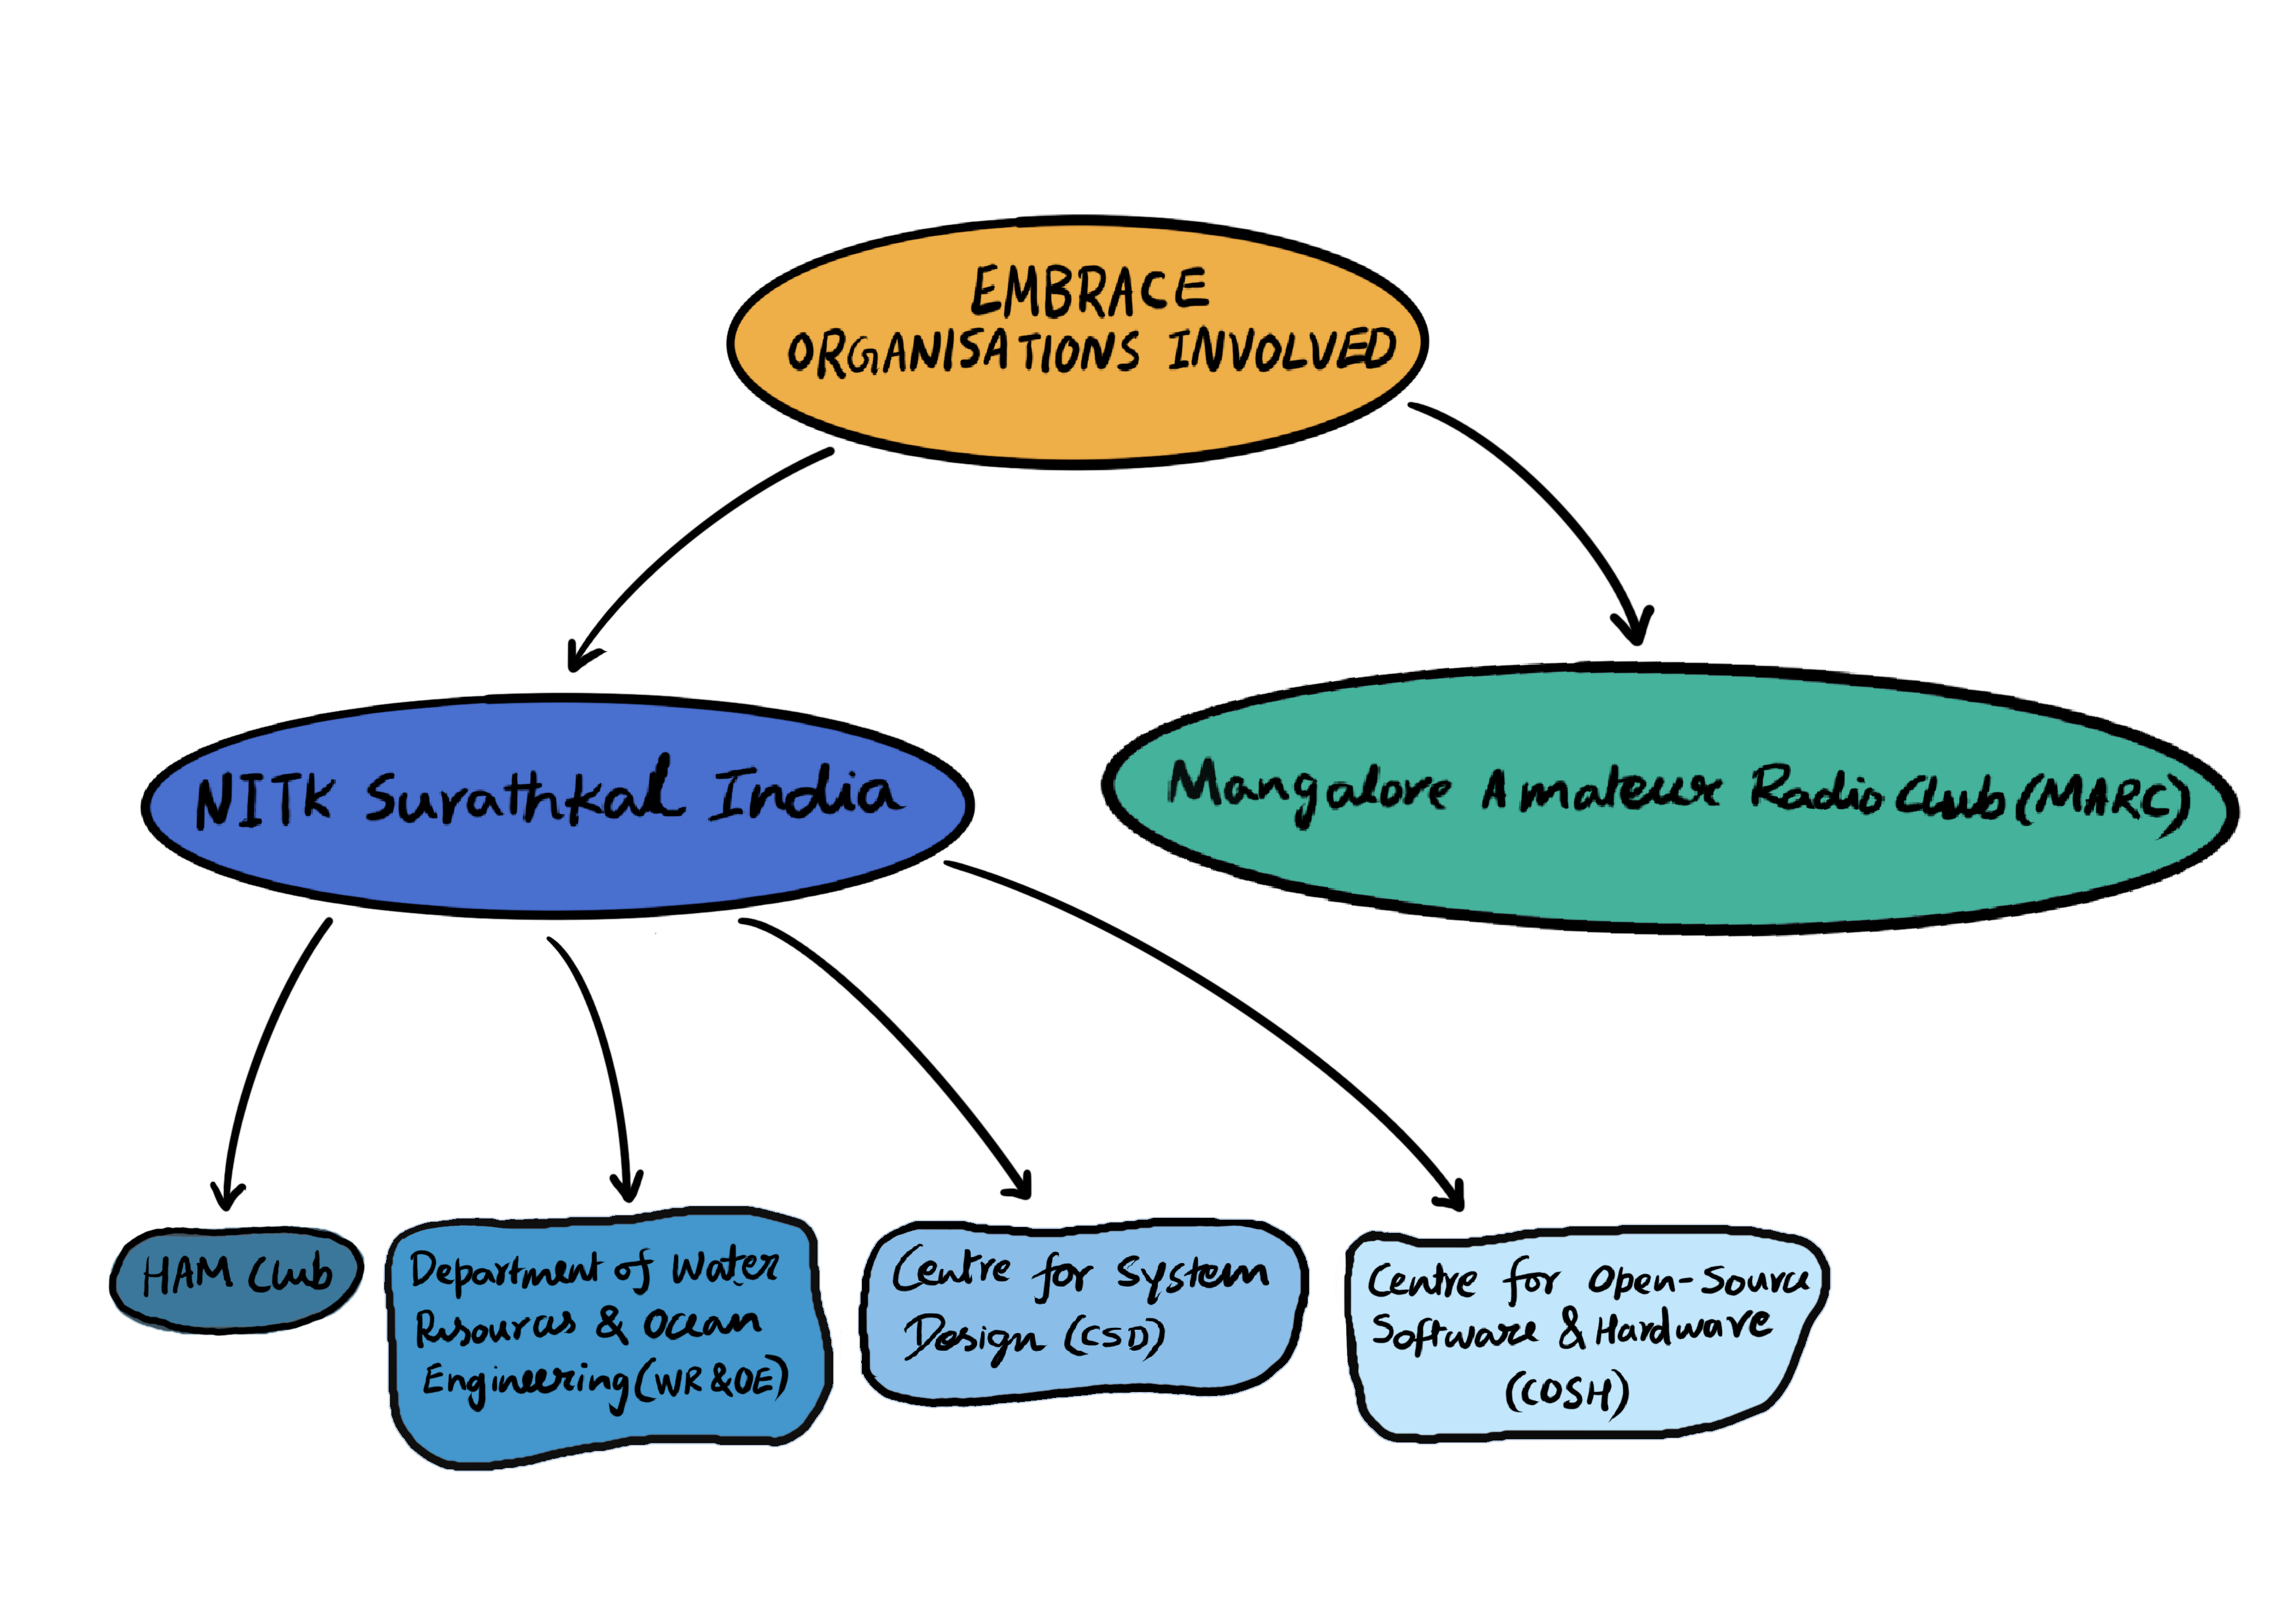 EMBRACE
ORGANISATIONS INVOLVED
NITK Surathkal India
Mangalore Amateur Radio Club (MARC)
HAM Club
Department of Water
Resources & Ocean
Engineering (WR&OE)
Centre for System
Design (CSD)
Centre for Open-Source
Software & Hardware
(COSH)